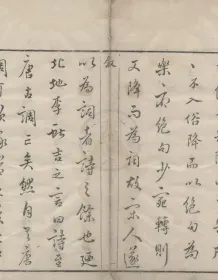 不入俗降而以絶句為
樂府絶句少宛轉則
又降而為詞故宋人遂
以為詞者詩之餘也廼
北地李獻吉之言曰詩至
唐古調亡矣然自有唐
調可